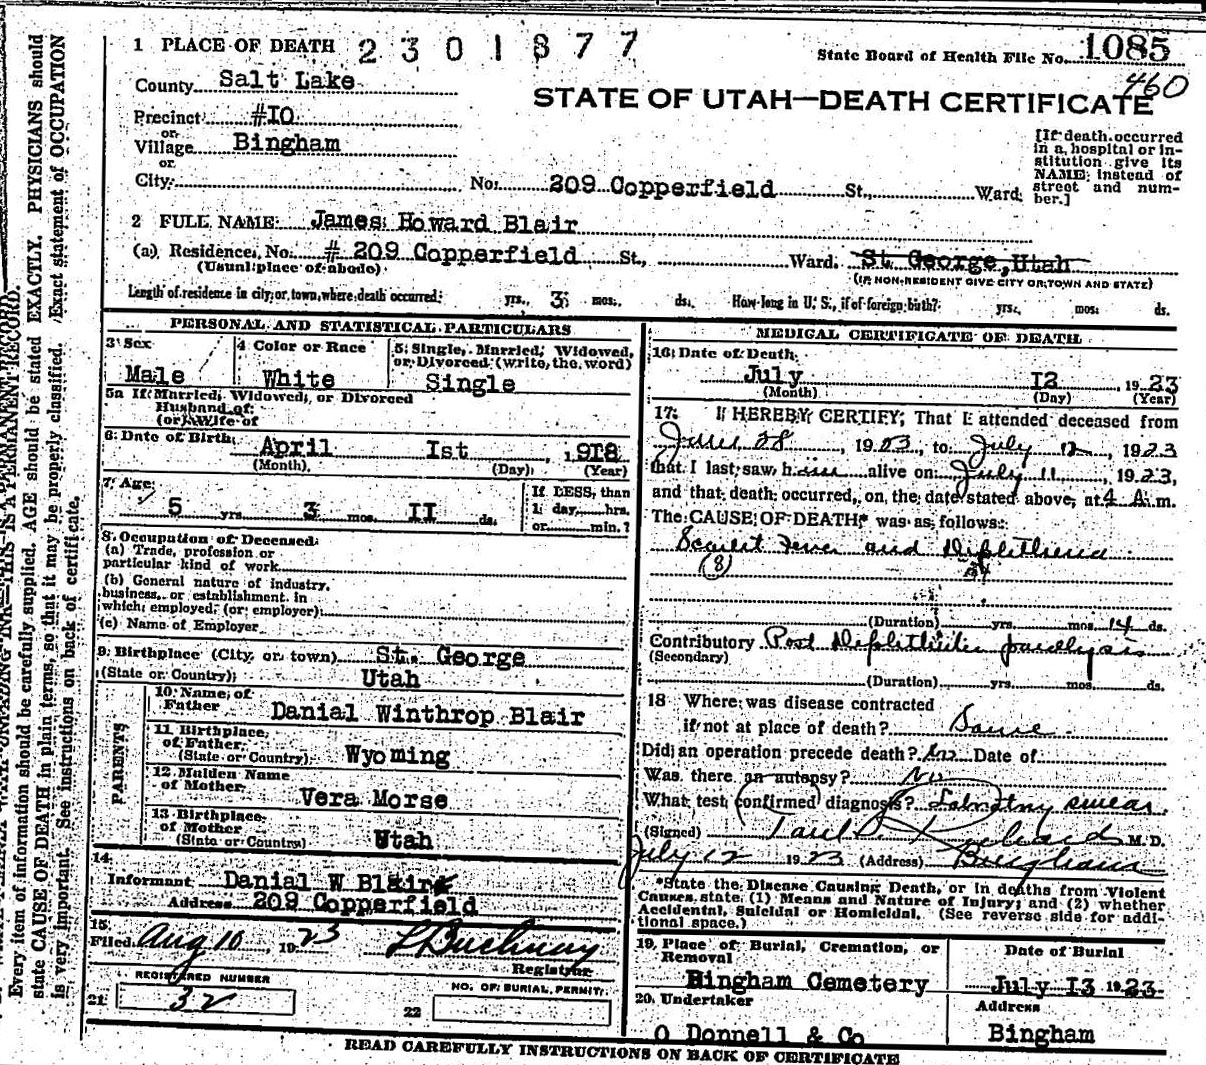 1 PLACE OF DEATH 2301877
State Board of Health File No. 1085
460
County Salt Lake
STATE OF UTAH—DEATH CERTIFICATE
Precinct #IO
or
Village Bingham
or
City
No. 209 Copperfield St., Ward
[If death occurred
in a hospital or in-
stitution give its
NAME instead of
street and num-
ber.]
2 FULL NAME James Howard Blair
(a) Residence, No. # 209 Copperfield St., Ward. St George, Utah
(Usual place of abode) (IF NON-RESIDENT GIVE CITY OR TOWN AND STATE)
Length of residence in city or town where death occurred yrs. 3 mos. ds. How long in U. S., if of foreign birth? yrs. mos. ds.
PERSONAL AND STATISTICAL PARTICULARS
3 Sex
Male
4 Color or Race
White
5 Single, Married, Widowed,
or Divorced (write the word)
Single
5a If Married, Widowed, or Divorced
Husband of
(or) Wife of
6 Date of Birth April Ist, 1918
(Month) (Day) (Year)
7 Age
5 yrs. 3 mos. II ds.
If LESS than
1 day, hrs.
or min.?
8 Occupation of Deceased
(a) Trade, profession or
particular kind of work
(b) General nature of industry,
business, or establishment in
which employed (or employer)
(c) Name of Employer
9 Birthplace (City or town) St. George
(State or Country) Utah
PARENTS
10 Name of
Father Danial Winthrop Blair
11 Birthplace
of Father
(State or Country) Wyoming
12 Maiden Name
of Mother Vera Morse
13 Birthplace
of Mother
(State or Country) Utah
14
Informant Danial W Blair
Address 209 Copperfield
15
Filed Aug 10, 1923
Registrar
REGISTERED NUMBER
21 32
NO. OF BURIAL PERMIT
22
MEDICAL CERTIFICATE OF DEATH
16 Date of Death
July I2, 1923
(Month) (Day) (Year)
17 I HEREBY CERTIFY, That I attended deceased from
June 28, 1923, to July 12, 1923
that I last saw him alive on July 11, 1923,
and that death occurred, on the date stated above, at 4 A.m.
The CAUSE OF DEATH* was as follows:
Scarlet Fever and Diphtheria
(8)
(Duration) yrs. mos. 14 ds.
Contributory Post Diphtheritic paralysis
(Secondary)
(Duration) yrs. mos. ds.
18 Where was disease contracted
if not at place of death? Same
Did an operation precede death? No Date of
Was there an autopsy? No
What test confirmed diagnosis? Labratory smear
(Signed) Paul Richards M. D.
July 12 1923 (Address) Bingham
*State the Disease Causing Death, or in deaths from Violent
Causes, state (1) Means and Nature of Injury; and (2) whether
Accidental, Suicidal or Homicidal. (See reverse side for addi-
tional space.)
19 Place of Burial, Cremation, or
Removal
Bingham Cemetery
Date of Burial
July I3 1923
20 Undertaker
O Donnell & Co
Address
Bingham
READ CAREFULLY INSTRUCTIONS ON BACK OF CERTIFICATE
Every item of information should be carefully supplied. AGE should be stated EXACTLY. PHYSICIANS should
state CAUSE OF DEATH in plain terms, so that it may be properly classified. Exact statement of OCCUPATION
is very important. See instructions on back of certificate.